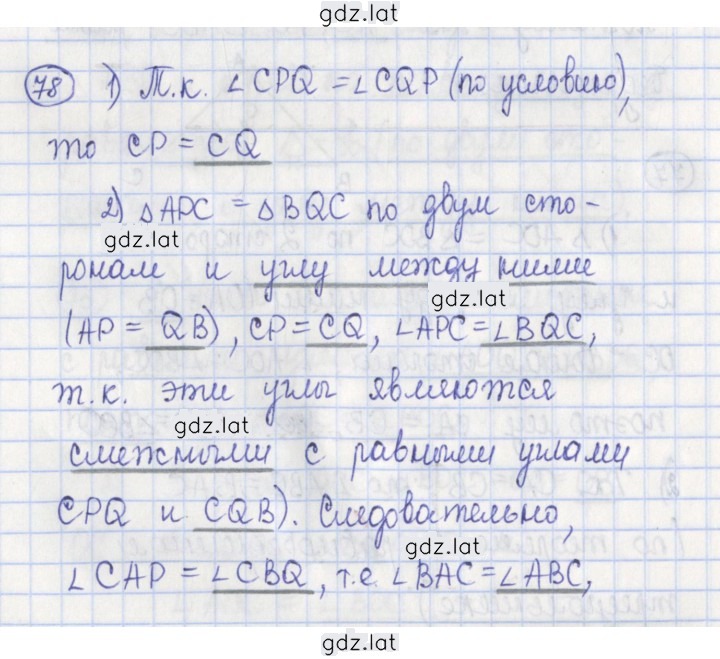 gdz.lat
78 1) Т.к. ∠CPQ = ∠CQP (по условию),
то CP = CQ
2) △APC = △BQC по двум сто-
gdz.lat
ронам и углу между ними
gdz.lat
(AP = QB), CP = CQ, ∠APC = ∠BQC,
т.к. эти углы являются
gdz.lat
смежными с равными углами
CPQ и CQB). Следовательно,
gdz.lat
∠CAP = ∠CBQ, т.е. ∠BAC = ∠ABC,
gdz.lat